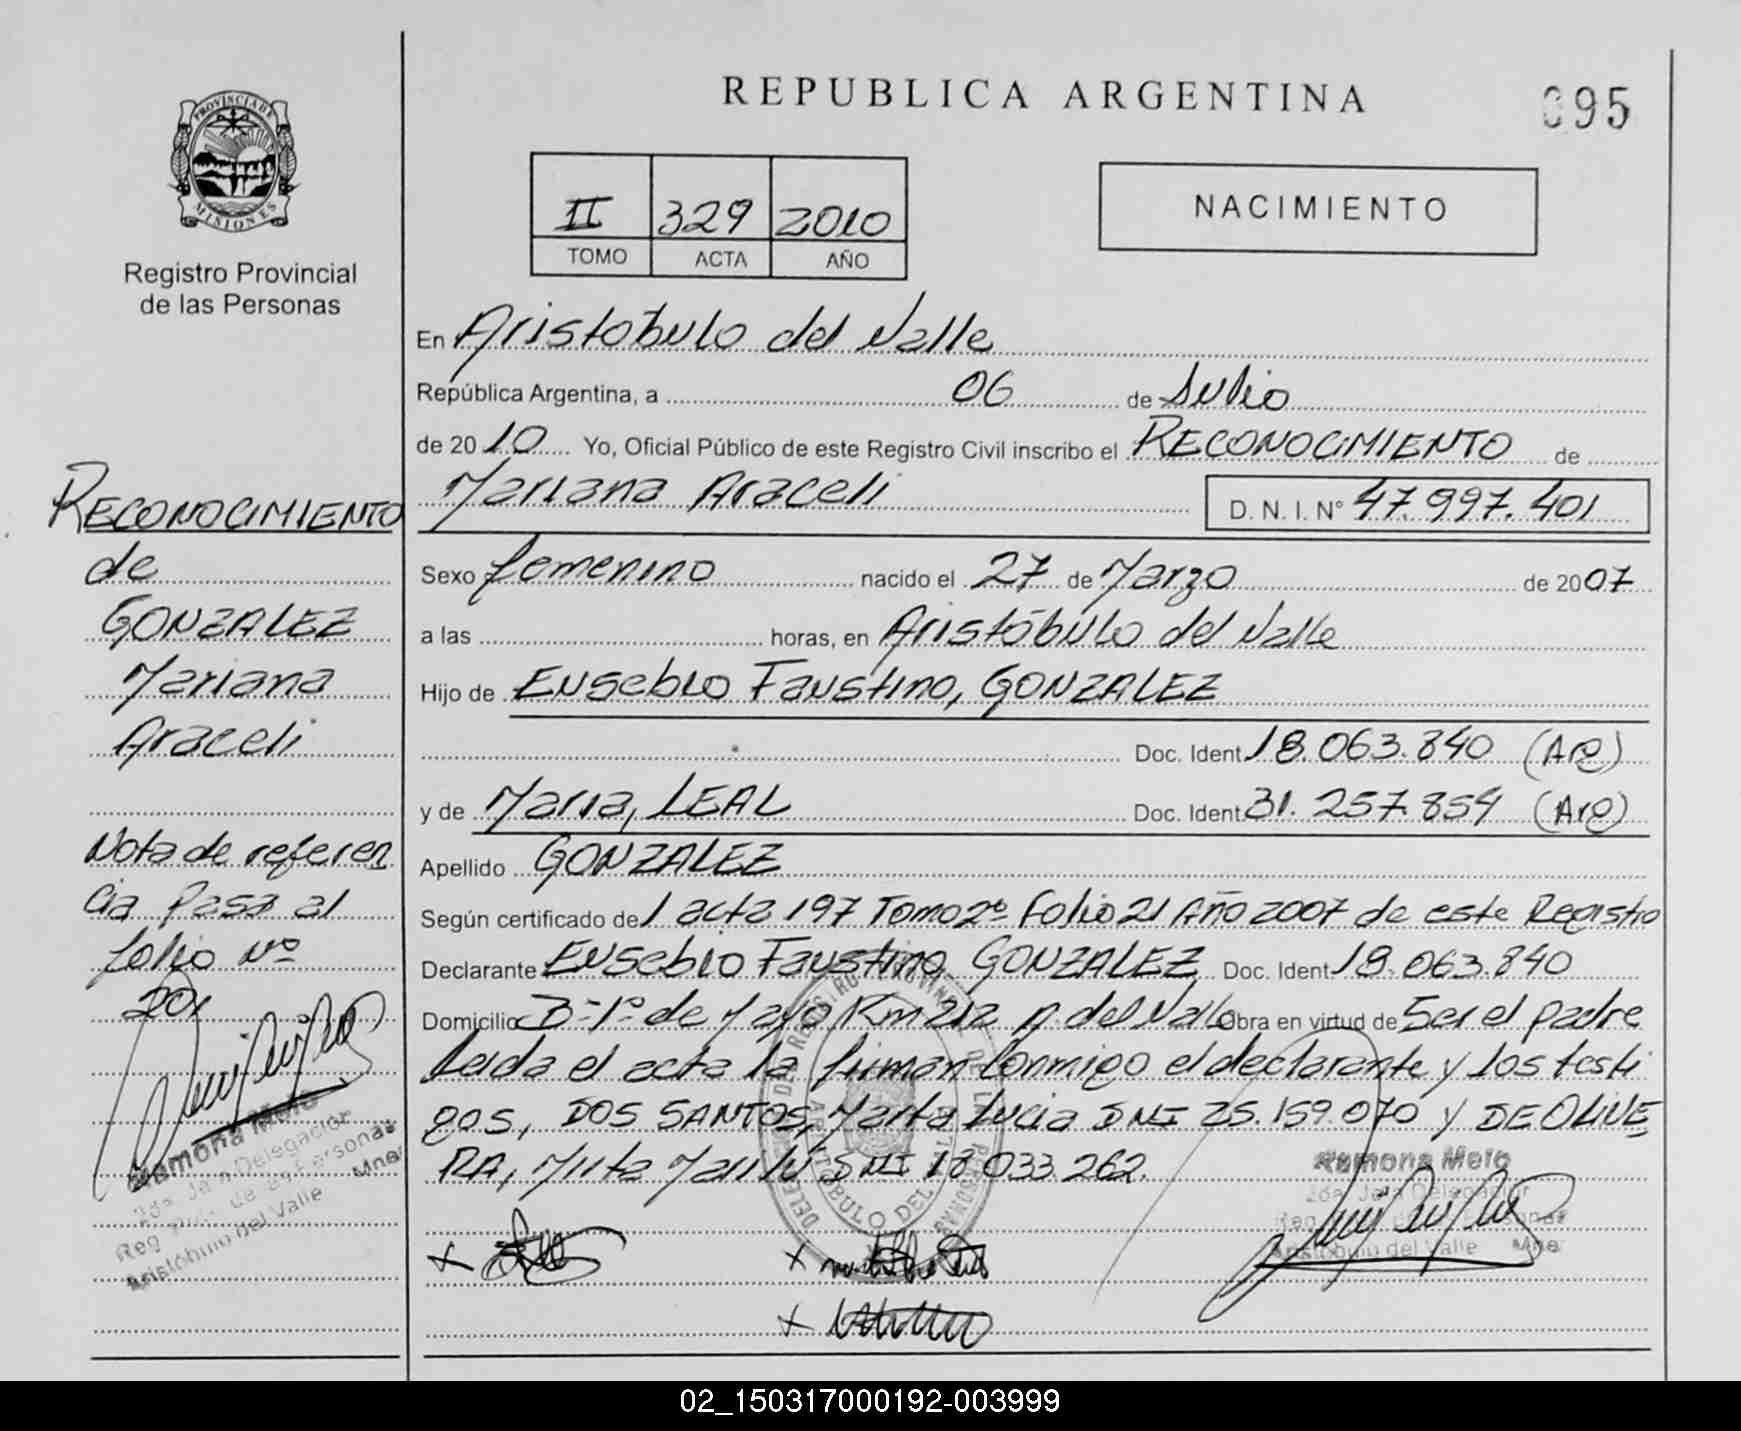 REPUBLICA ARGENTINA
095
PROVINCIA DE
MISIONES
Registro Provincial
de las Personas
II 329 2010
TOMO ACTA AÑO
NACIMIENTO
En Aristóbulo del Valle
República Argentina, a 06 de Julio
de 2010 Yo, Oficial Público de este Registro Civil inscribo el RECONOCIMIENTO de
Mariana Araceli D. N. I. N° 47.997.401
Sexo femenino nacido el 27 de Marzo de 2007
a las horas, en Aristóbulo del Valle
Hijo de Eusebio Faustino, GONZALEZ
Doc. Ident. 18.063.840 (Arg)
y de Maria, LEAL Doc. Ident. 31.257.854 (Arg)
Apellido GONZALEZ
Según certificado de l acta 197 Tomo 2º folio 21 Año 2007 de este Registro
Declarante Eusebio Faustino GONZALEZ Doc. Ident. 18.063.840
Domicilio B-1º de Mayo Km 212 A. del Valle Obra en virtud de Ser el padre
Leida el acta la firman Conmigo el declarante y los testi
gos, DOS SANTOS, Marta Lucia DNI 25.159.070 y DE OLIVE
RA, Mirta Mariú DNI 18.033.262.
Ramona Melo
2da Jefa Delegación
Aristóbulo del Valle Mnes
RECONOCIMIENTO
de
GONZALEZ
Mariana
Araceli
Nota de referen
cia Pasa al
folio Nº
201
Ramona Melo
2da Jefa Delegación
Reg Prov. de las Personas
Aristóbulo del Valle Mnes
02_150317000192-003999